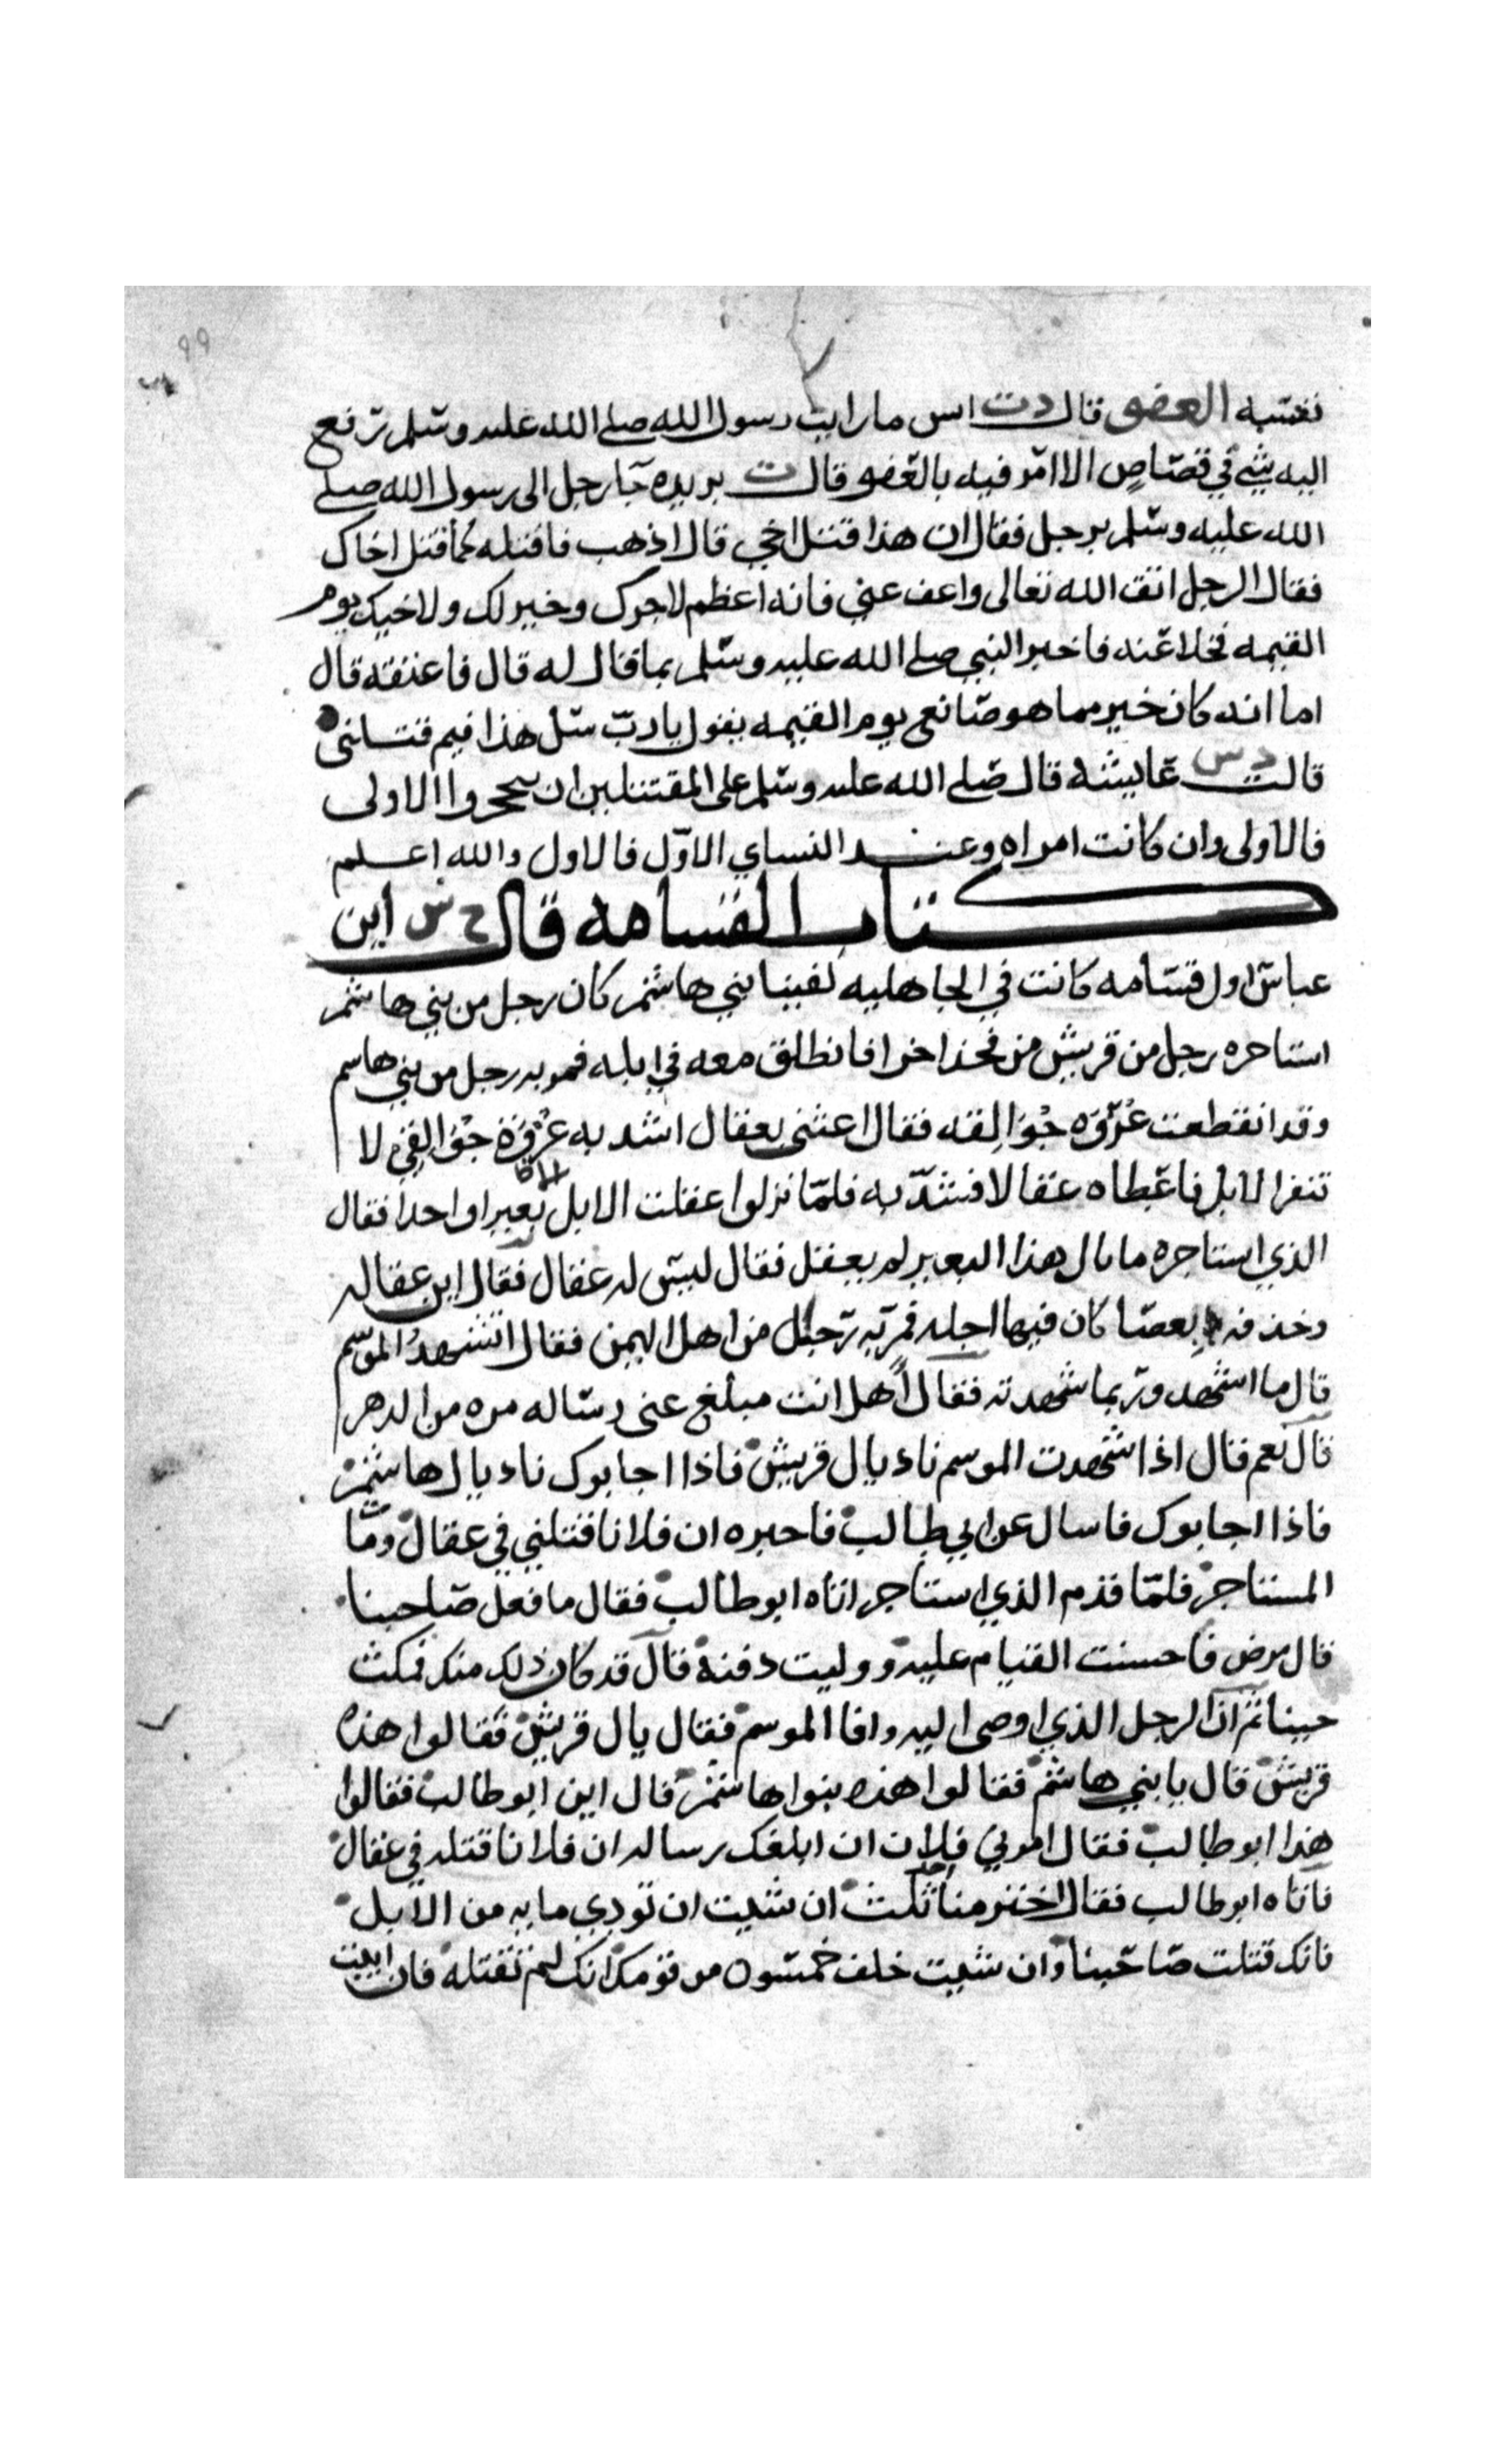 ٩٩
نفسه العفو قال دت انس ما رايت رسول الله صلى الله عليه وسلم رفع
اليه شي في قصاص الا امر فيه بالعفو قال ت بريده جا رجل الى رسول الله صلى
الله عليه وسلم برجل فقال ان هذا قتل اخي قال اذهب فاقتله كما قتل اخاك
فقال الرجل اتق الله تعالى واعف عني فانه اعظم لاجرك وخير لك ولاخيك يوم
القيمه فخلا عنه فاخبر النبي صلى الله عليه وسلم بما قال له قال فاعتقه قال
اما انه كان خير مما هو صانع يوم القيمه يقول يا رب سل هذا فيم قتلني
قالت دس عايشه قال صلى الله عليه وسلم على المقتتلين ان ينحجزوا الاولى
فالاولى وان كانت امراه وعند النساي الاول فالاول والله اعلم
كتاب القسامه قال خ س ابن
عباس اول قسامه كانت في الجاهليه لفينا بني هاشم كان رجل من بني هاشم
استاجره رجل من قريش من فخذ اخرا فانطلق معه في ابله فمر به رجل من بني هاشم
وقد انقطعت عروه جوالقه فقال اغثني بعقال اشد به عروة جوالقي لا
تنفر الابل فاعطاه عقالا فشد به فلما نزلوا عقلت الابل الا بعيرا واحدا فقال
الذي استاجره ما بال هذا البعير لم يعقل فقال ليس له عقال فقال اين عقاله
وخذفه بعصا كان فيها اجله فمر به رجل من اهل اليمن فقال اتشهد الموسم
قال ما اشهد وربما شهدته فقال هل انت مبلغ عني رساله مره من الدهر
قال نعم قال اذا شهدت الموسم ناد يال قريش فاذا اجابوك ناد يال هاشم
فاذا اجابوك فاسال عن ابي طالب فاخبره ان فلانا قتلني في عقال ومات
المستاجر فلما قدم الذي استاجر اتاه ابو طالب فقال ما فعل صاحبنا
قال مرض فاحسنت القيام عليه ووليت دفنه قال قد كان ذلك منك فمكث
حينا ثم ان الرجل الذي اوصى اليه وافا الموسم فقال يال قريش فقالوا هذه
قريش قال يا بني هاشم فقالوا هذه بنوا هاشم قال اين ابو طالب فقالوا
هذا ابو طالب فقال امرني فلان ان ابلغك رساله ان فلانا قتله في عقال
فاتاه ابو طالب فقال اختر منا احد ثلث ان شيت ان تودي مايه من الابل
فانك قتلت صاحبنا وان شيت حلف خمسون من قومك انك لم تقتله فان ابيت